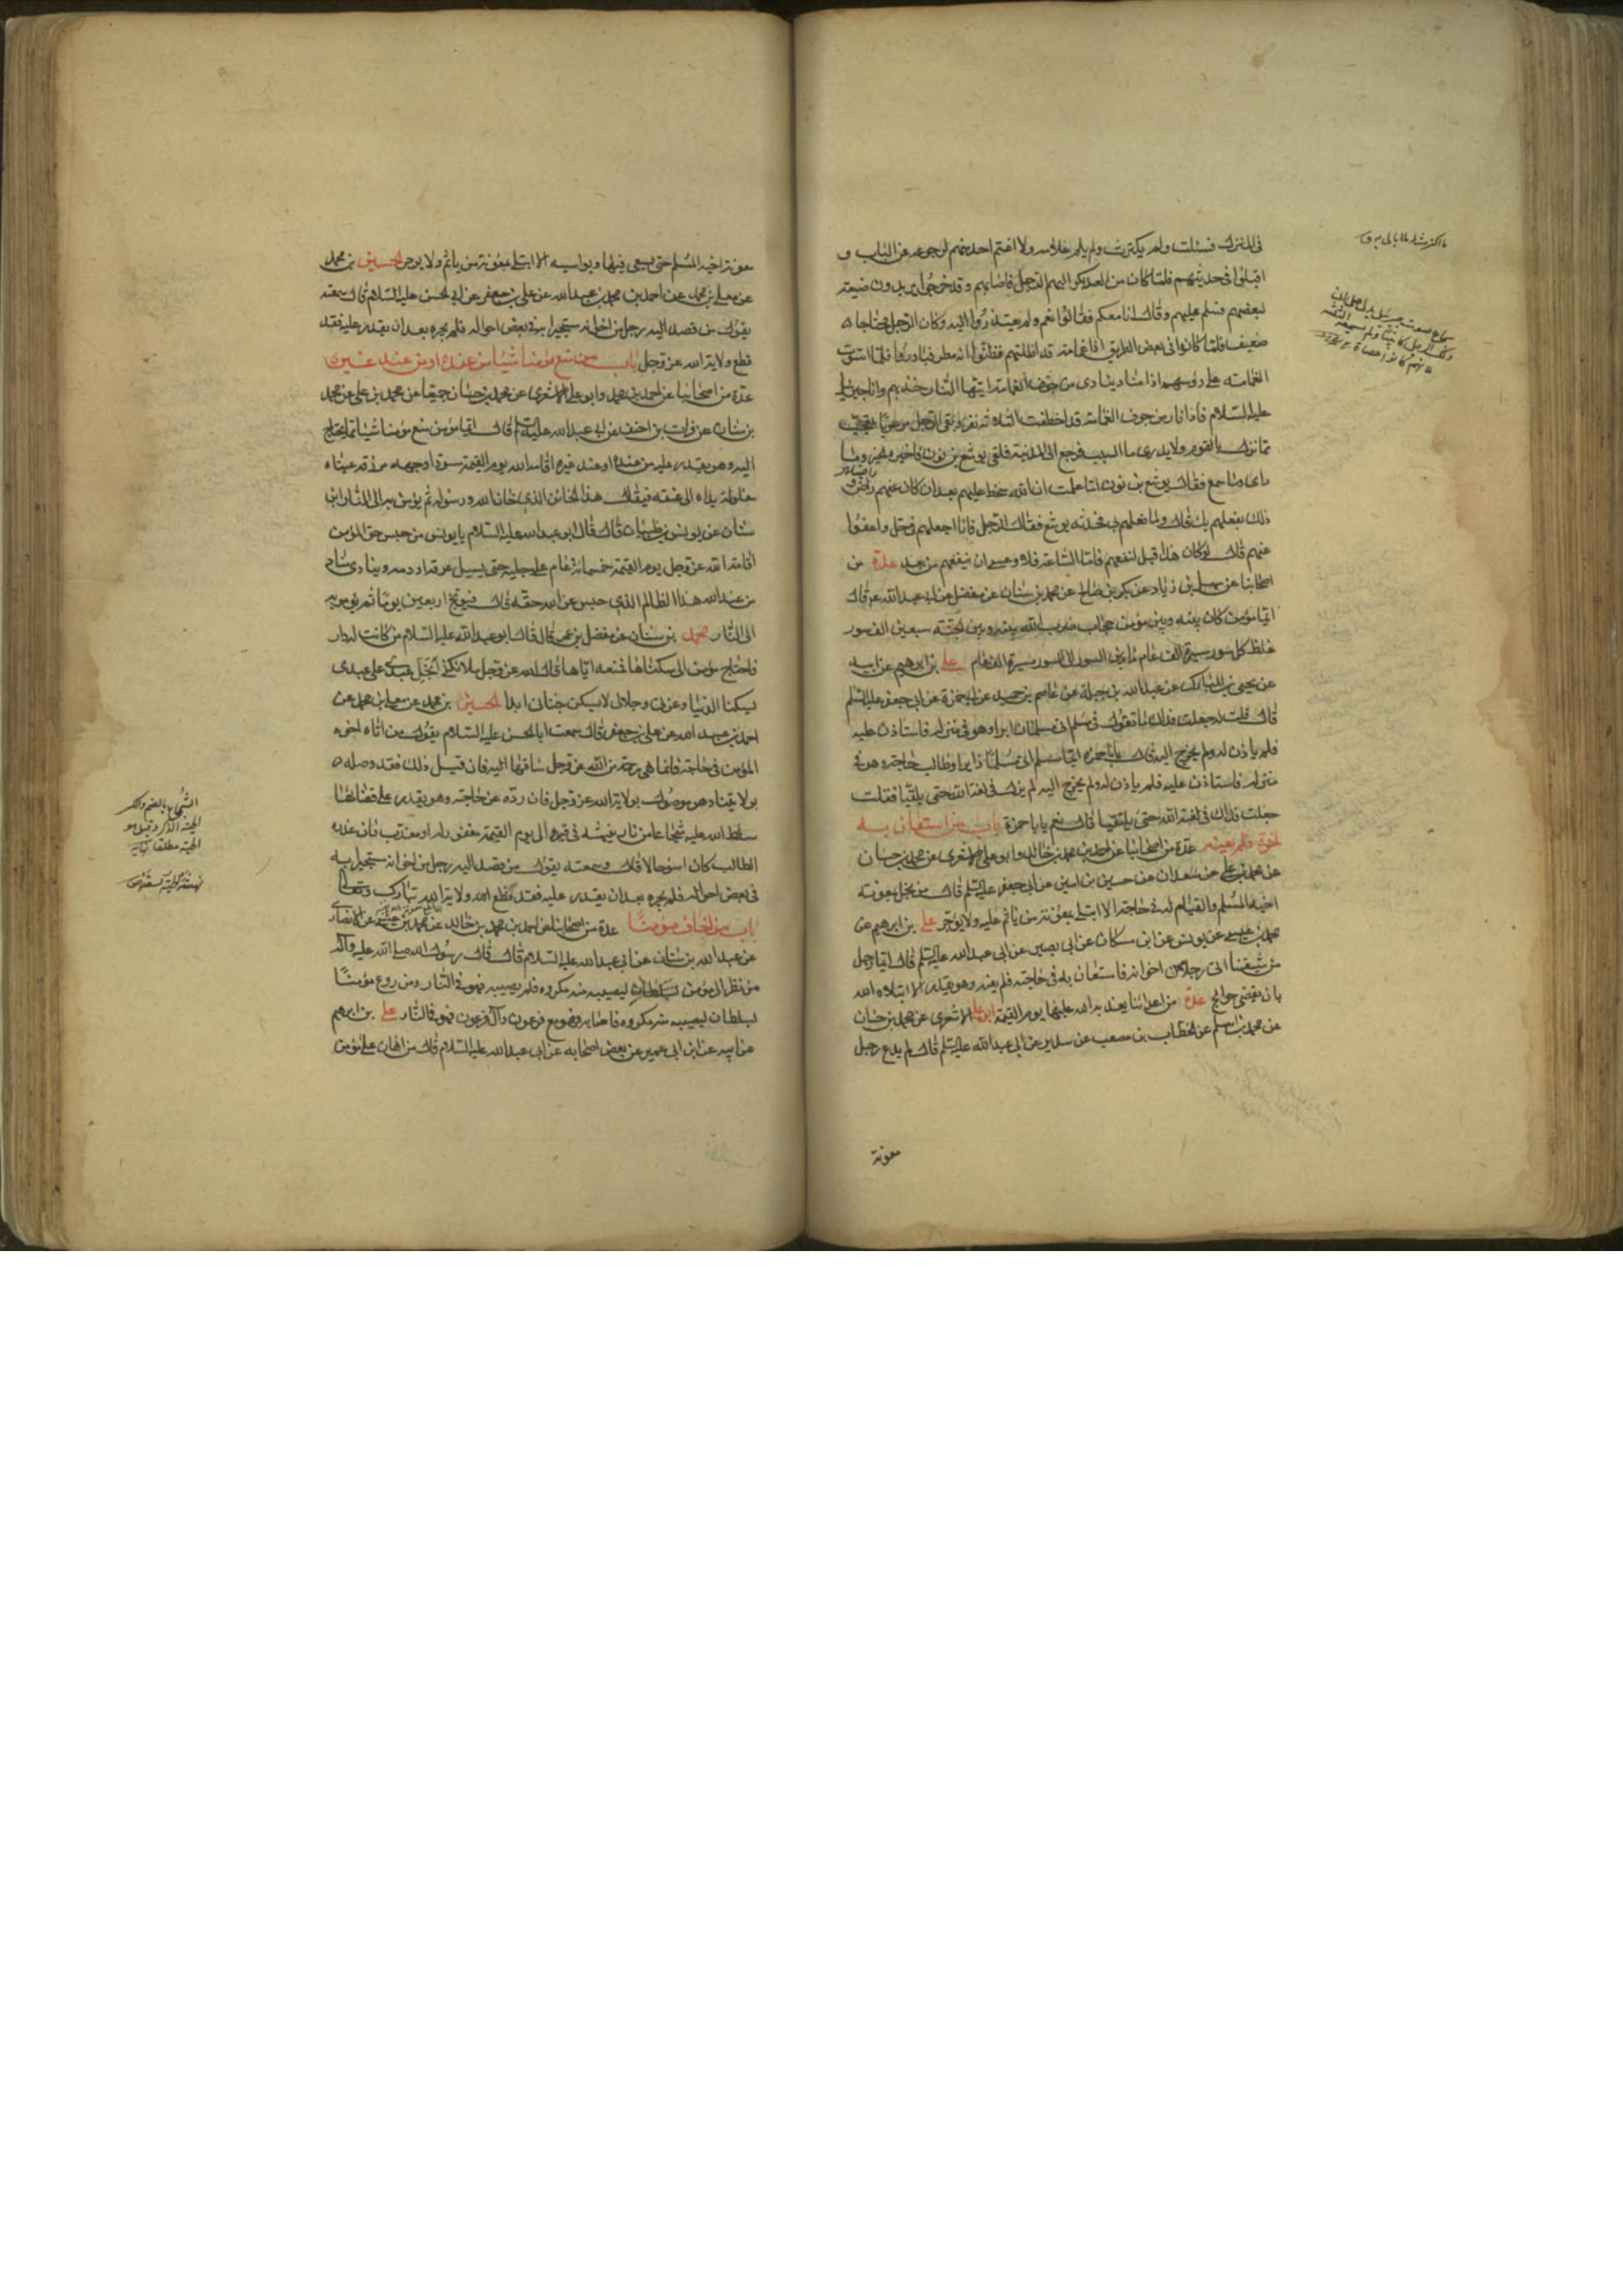 فى المنزل فسكت ولم يكترث ولم يلم غلامه ولا اغتم احد منهم لرجوعه عن الباب و
اقبلوا فى حديثهم فلما كان من الغد بكر اليهم الرجل فاصابهم وقد خرجوا يريدون ضيعة
لبعضهم فسلم عليهم وقال انا معكم فقالوا نعم ولم يعتذروا اليه وكان الرجل محتاجا
ضعيف الحال فلما كانوا فى بعض الطريق اذا غمامة قد اظلتهم فظنوا انه مطر فبادروا فلما استوت
الغمامة على رؤسهم اذا مناد ينادى من جوف الغمامة ايتها النار خذيهم وانا جبرئيل
عليه السلام فاذا نار من جوف الغمامة قد اختطفت الثلاثة نفر وبقى الرجل مرعوبا يعجب
مما نزل بالقوم ولا يدرى ما السبب فرجع الى المدينة فلقى يوشع بن نون فاخبره الخبر وما
راى وما سمع فقال يوشع بن نون اما علمت ان الله سخط عليهم بعد ان كان عنهم راضيا و
ذلك بفعلهم بك قال وما فعلهم بى فحدثه يوشع فقال الرجل فانا اجعلهم فى حل واعفوا
عنهم قال لو كان هذا قبل لنفعهم فاما الساعة فلا وعسى ان ينفعهم من بعد عدة من
اصحابنا عن سهل بن زياد عن بكر بن صالح عن محمد بن سنان عن مفضل عن ابى عبد الله ع قال
ايما مؤمن كان بينه وبين مؤمن حجاب ضرب الله بينه وبين الجنة سبعين الف سور
غلظ كل سور مسيرة الف عام ما بين السور الى السور مسيرة الف عام على بن ابرهيم عن ابيه
عن يحيى بن المبارك عن عبد الله بن جبلة عن عاصم بن حميد عن ابى حمزة عن ابى جعفر عليه السلم
قال قلت له جعلت فداك ما تقول فى مسلم اتى مسلما زايرا وهو فى منزله فاستاذن عليه
فلم ياذن له ولم يخرج اليه قال يا با حمزة ايما مسلم اتى مسلما زايرا او طالب حاجة وهو فى
منزله فاستاذن عليه فلم ياذن له ولم يخرج اليه لم يزل فى لعنة الله حتى يلتقيا فقلت
جعلت فداك فى لعنة الله حتى يلتقيا قال نعم يا با حمزة باب من استعان به
اخوه فلم يعنه عدة من اصحابنا عن احمد بن محمد بن خالد وابو على الاشعرى عن محمد بن حسان
عن محمد بن على عن سعدان عن حسين بن امين عن ابى جعفر عليه السلم قال من بخل بمعونة
اخيه المسلم والقيام له فى حاجة الا ابتلى بمعونة من ياثم عليه ولا يؤجر على بن ابرهيم عن
محمد بن عيسى عن يونس عن ابن مسكان عن ابى بصير عن ابى عبد الله عليه السلم قال ايما رجل
من شيعتنا اتى رجلا من اخوانه فاستعان به فى حاجته فلم يعنه وهو يقدر الا ابتلاه الله
بان يقضى حوائج عدة من اعدائنا يعذبه الله عليها يوم القيمة ابو على الاشعرى عن محمد بن حسان
عن محمد بن اسلم عن الخطاب بن مصعب عن سدير عن ابى عبد الله عليه السلم قال لم يدع رجل
معونة
معونة اخيه المسلم حتى يسعى فيها ويواسيه الا ابتلى بمعونة من ياثم ولا يوجر الحسين بن محمد
عن معلى بن محمد عن احمد بن محمد بن عبد الله عن على بن جعفر عن ابى الحسن عليه السلام قال سمعته
يقول من قصد اليه رجل من اخوانه مستجيرا به فى بعض احواله فلم يجره بعد ان يقدر عليه فقد
قطع ولاية الله عز وجل باب من منع مؤمنا شيئا من عنده او من عند غيره
عدة من اصحابنا عن احمد بن محمد وابو على الاشعرى عن محمد بن حسان جميعا عن محمد بن على عن محمد
بن سنان عن فرات بن احنف عن ابى عبد الله عليه السلم قال ايما مؤمن منع مؤمنا شيئا مما يحتاج
اليه وهو يقدر عليه من عنده او عند غيره اقامه الله يوم القيمة مسودا وجهه مزرقة عيناه
مغلولة يداه الى عنقه فيقال هذا الخائن الذى خان الله ورسوله ثم يؤمر به الى النار ابن
سنان عن يونس بن ظبيان قال قال ابو عبد الله عليه السلام يا يونس من حبس حق المؤمن
اقامه الله عز وجل يوم القيمة خمسمائة عام على رجليه حتى يسيل عرقه او دمه وينادى مناد
من عند الله هذا الظالم الذى حبس عن الله حقه قال فيوبخ اربعين يوما ثم يؤمر به
الى النار محمد بن سنان عن مفضل بن عمر قال قال ابو عبد الله عليه السلام من كانت له دار
فاحتاج مؤمن الى سكناها فمنعه اياها قال الله عز وجل ملائكتى ابخل عبدى على عبدى
بسكنا الدنيا وعزتى وجلالى لا يسكن جنانى ابدا الحسين بن محمد عن معلى بن محمد عن
احمد بن محمد بن عبد الله عن على بن جعفر قال سمعت ابا الحسن عليه السلام يقول من اتاه اخوه
المؤمن فى حاجة فانما هى رحمة من الله عز وجل ساقها اليه فان قبل ذلك فقد وصله
بولايتنا وهو موصول بولاية الله عز وجل فان رده عن حاجته وهو يقدر على قضائها
سلط الله عليه شجاعا من نار ينهشه فى قبره الى يوم القيمة مغفور له او معذب فان عذره
الطالب كان اسوء حالا قال وسمعته يقول من قصد اليه رجل من اخوانه مستجيرا به
فى بعض احواله فلم يجره بعد ان يقدر عليه فقد قطع ولاية الله تبارك وتعالى
باب من اخاف مؤمنا عدة من اصحابنا عن احمد بن محمد بن خالد عن محمد بن عيسى عن الانصارى
عن عبد الله بن سنان عن ابى عبد الله عليه السلام قال قال رسول الله صلى الله عليه وآله
من نظر الى مؤمن بسلطان ليصيبه منه مكروه فلم يصيبه فهو فى النار ومن روع مؤمنا
بسلطان ليصيبه منه مكروه فاصابه فهو مع فرعون وآل فرعون فى النار على بن ابرهيم
عن ابيه عن ابن ابى عمير عن بعض اصحابه عن ابى عبد الله عليه السلام قال من اعان على مؤمن
الشجاع بالضم والكسر
الحية الذكر وقيل هو
الحية مطلقا نهاية